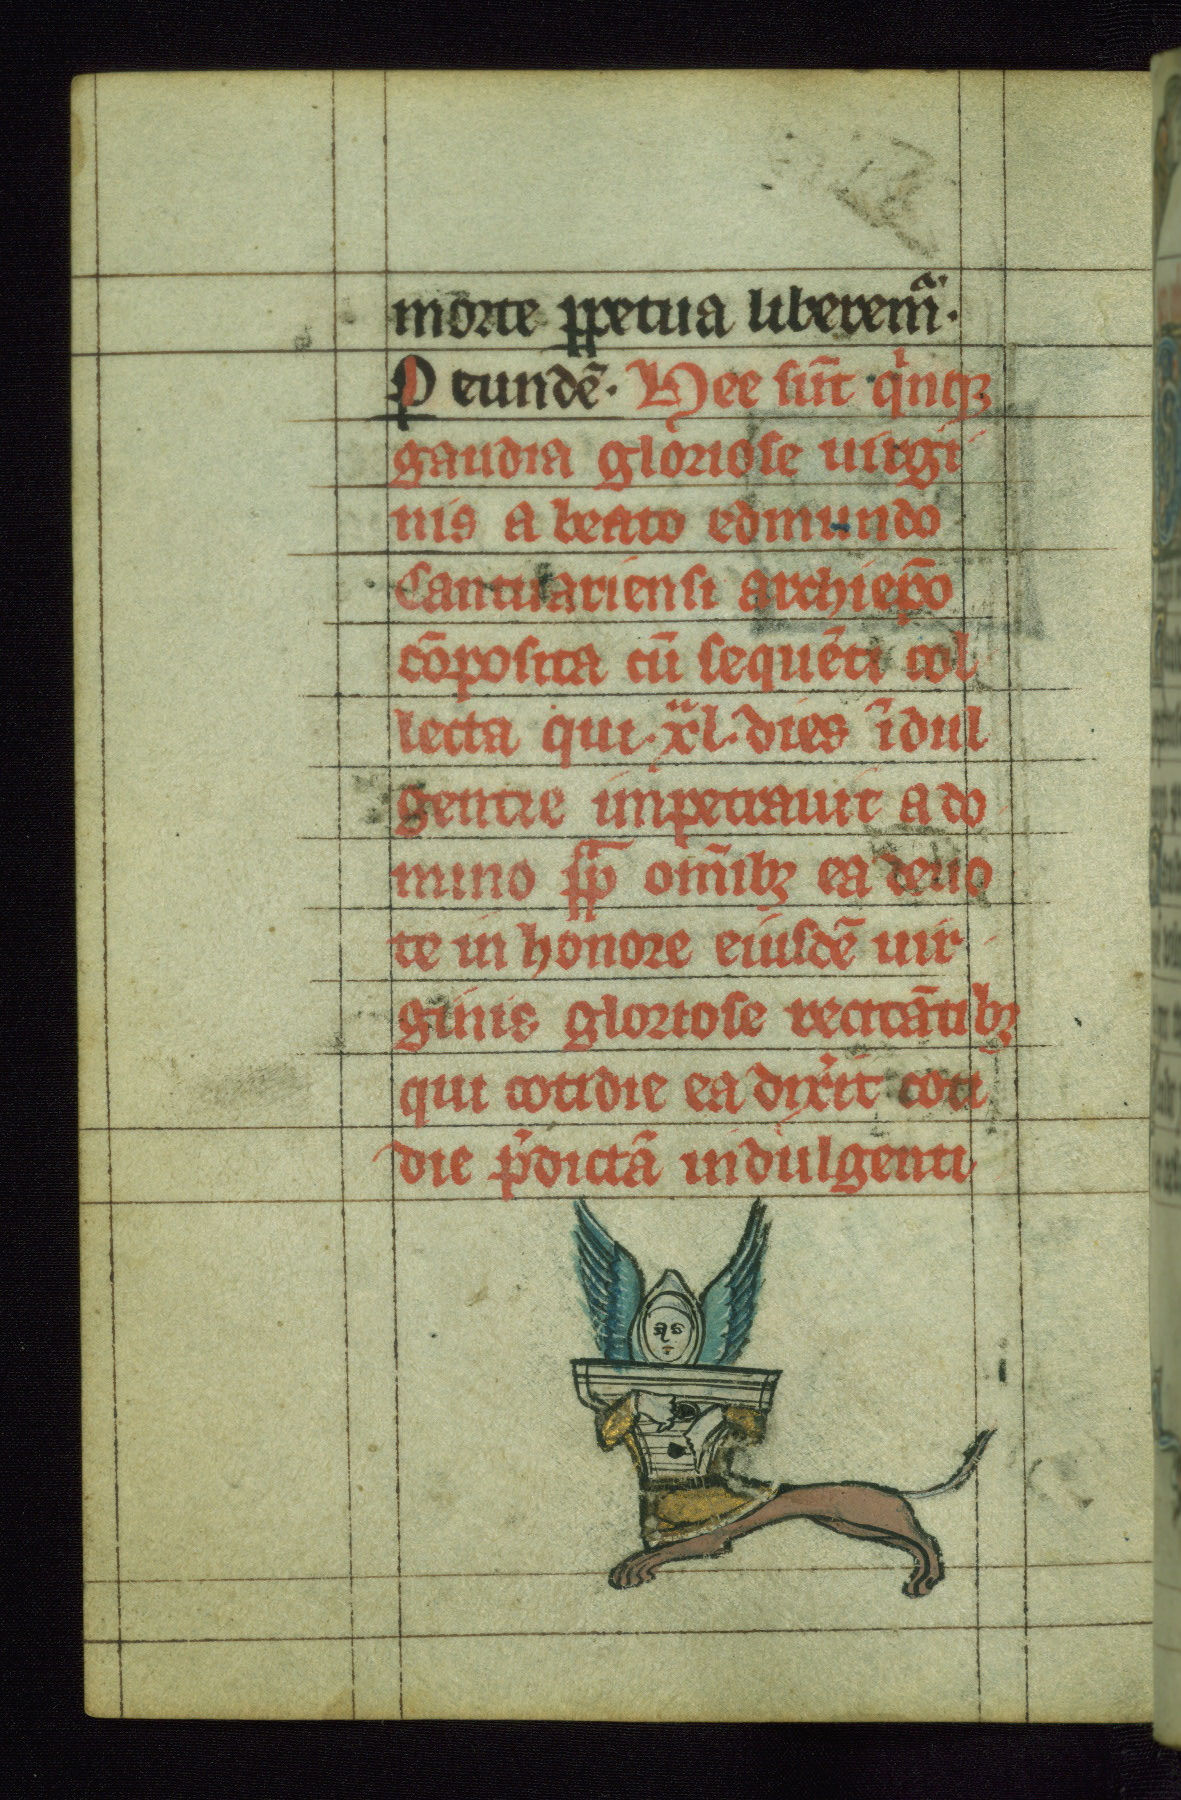 morte ꝑpetua liberem̃.
P eundẽ. Hee sũt qͥnqꝫ
gaudia gloriose uirgi
nis a beato edmundo
Cantuariensi archiep̃o
cõposita cũ sequẽti col
lecta qui .xl. dies ĩdul
gentie inpetrauit a do
mino sꝑ om̃ibꝫ ea deuo
te in honore eiusdẽ uir
ginis gloriose recitãtibꝫ
qui cotidie ea dix̃it coti
die p̃dictã indulgenti